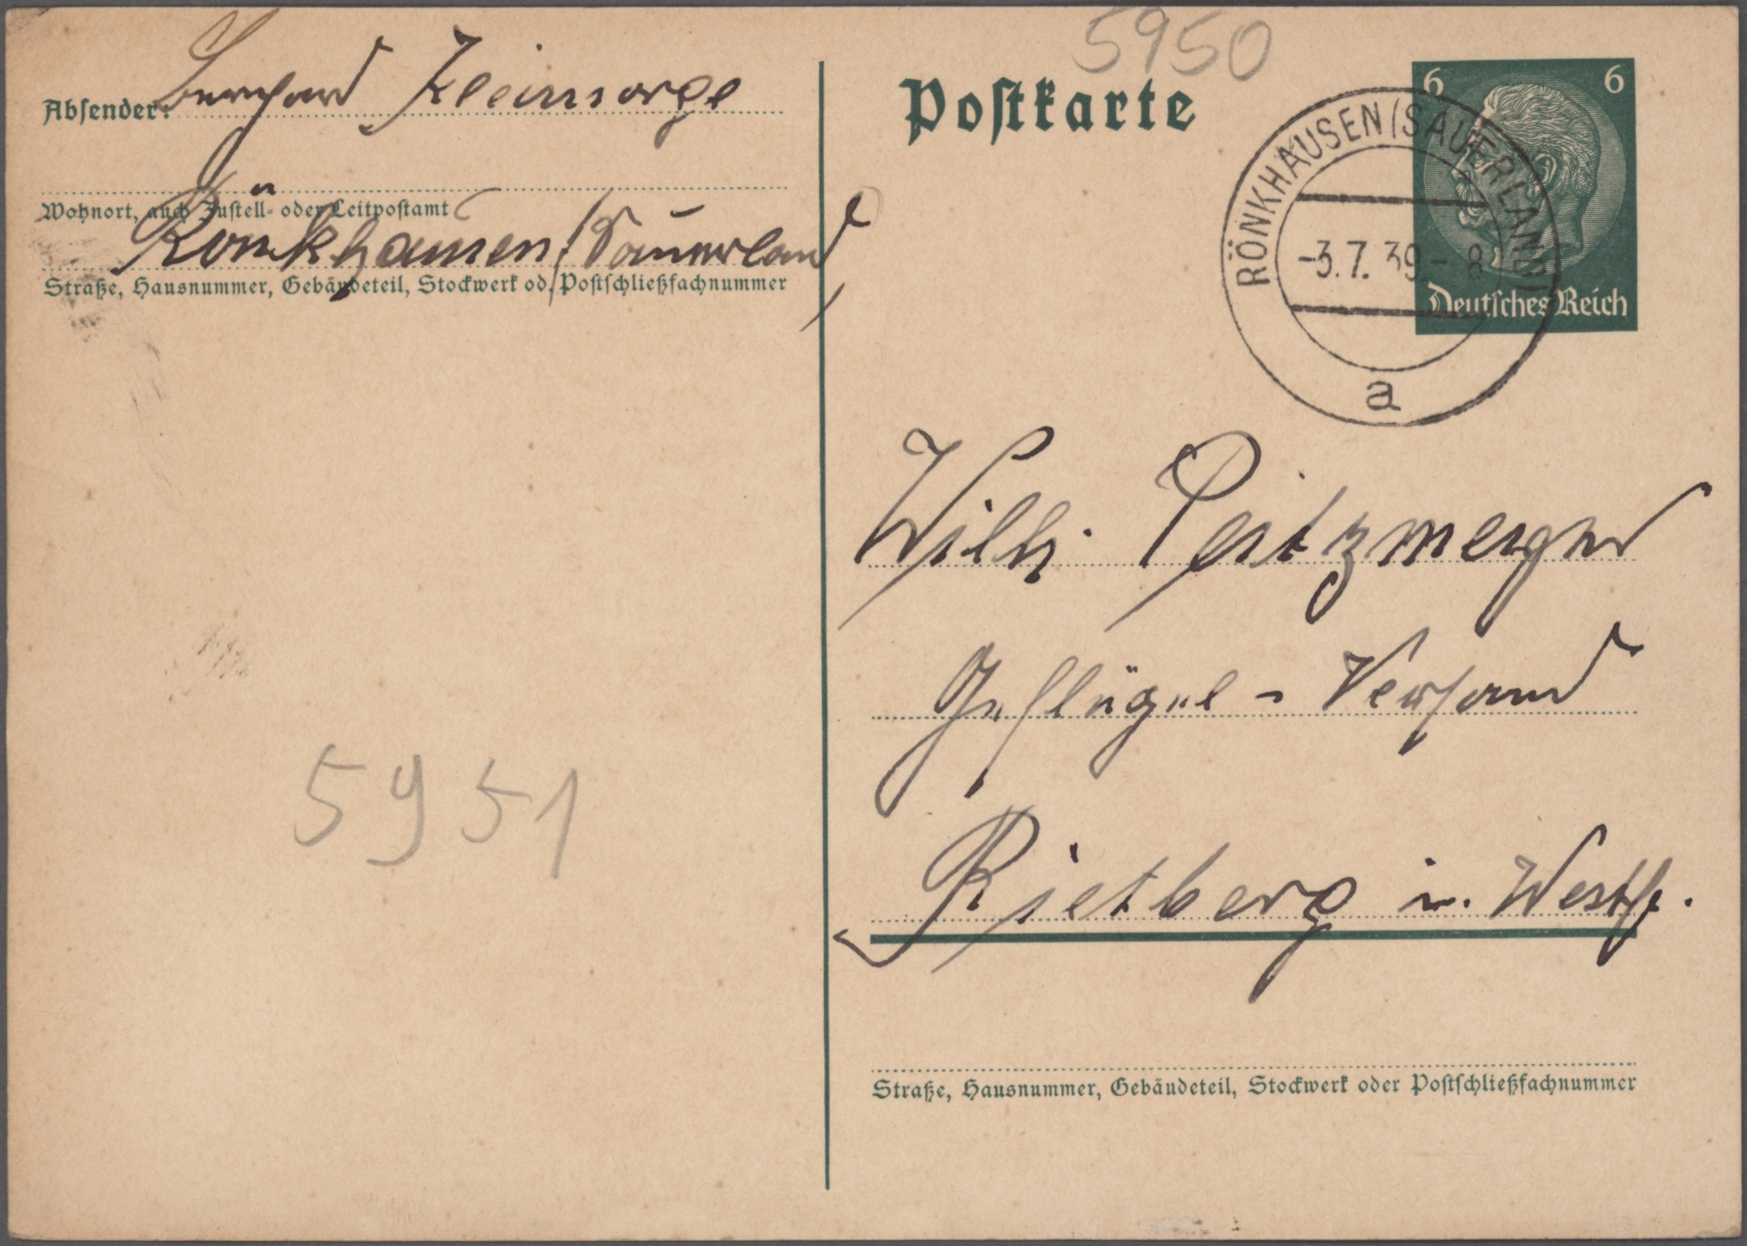 5950
Absender: Bernhard Kleinsorge
Wohnort, auch Zustell- oder Leitpostamt
Rönkhausen / Sauerland
Straße, Hausnummer, Gebäudeteil, Stockwerk od. Postschließfachnummer
Postkarte
6 6
Deutsches Reich
RÖNKHAUSEN (SAUERLAND)
-3.7.39.- 8
a
Wilh. Peitzmeyer
Geflügel - Versand
Rietberg i. Westf.
5951
Straße, Hausnummer, Gebäudeteil, Stockwerk oder Postschließfachnummer